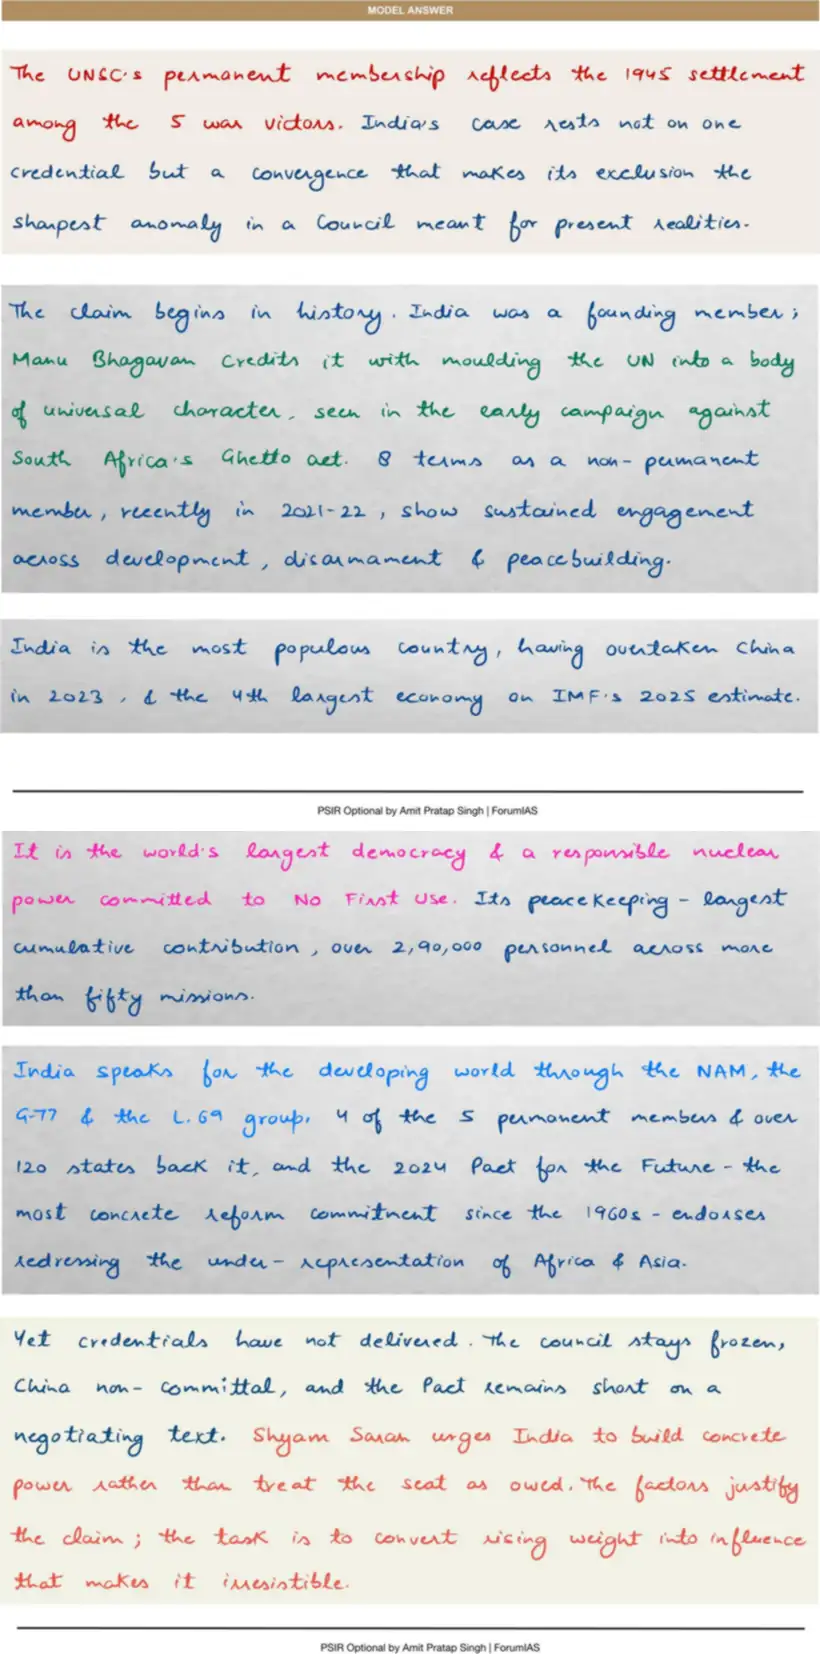 MODEL ANSWER
The UNSC's permanent membership reflects the 1945 settlement
among the 5 war victors. India's case rests not on one
credential but a convergence that makes its exclusion the
sharpest anomaly in a Council meant for present realities.
The claim begins in history. India was a founding member;
Manu Bhagavan credits it with moulding the UN into a body
of universal character, seen in the early campaign against
South Africa's Ghetto act. 8 terms as a non-permanent
member, recently in 2021-22, show sustained engagement
across development, disarmament & peacebuilding.
India is the most populous country, having overtaken China
in 2023, & the 4th largest economy on IMF's 2025 estimate.
PSIR Optional by Amit Pratap Singh | ForumIAS
It is the world's largest democracy & a responsible nuclear
power committed to No First Use. Its peacekeeping - largest
cumulative contribution, over 2,90,000 personnel across more
than fifty missions.
India speaks for the developing world through the NAM, the
G-77 & the L.69 group. 4 of the 5 permanent members & over
120 states back it, and the 2024 Pact for the Future - the
most concrete reform commitment since the 1960s - endorses
redressing the under-representation of Africa & Asia.
Yet credentials have not delivered. The council stays frozen,
China non-committal, and the Pact remains short on a
negotiating text. Shyam Saran urges India to build concrete
power rather than treat the seat as owed. The factors justify
the claim; the task is to convert rising weight into influence
that makes it irresistible.
PSIR Optional by Amit Pratap Singh | ForumIAS